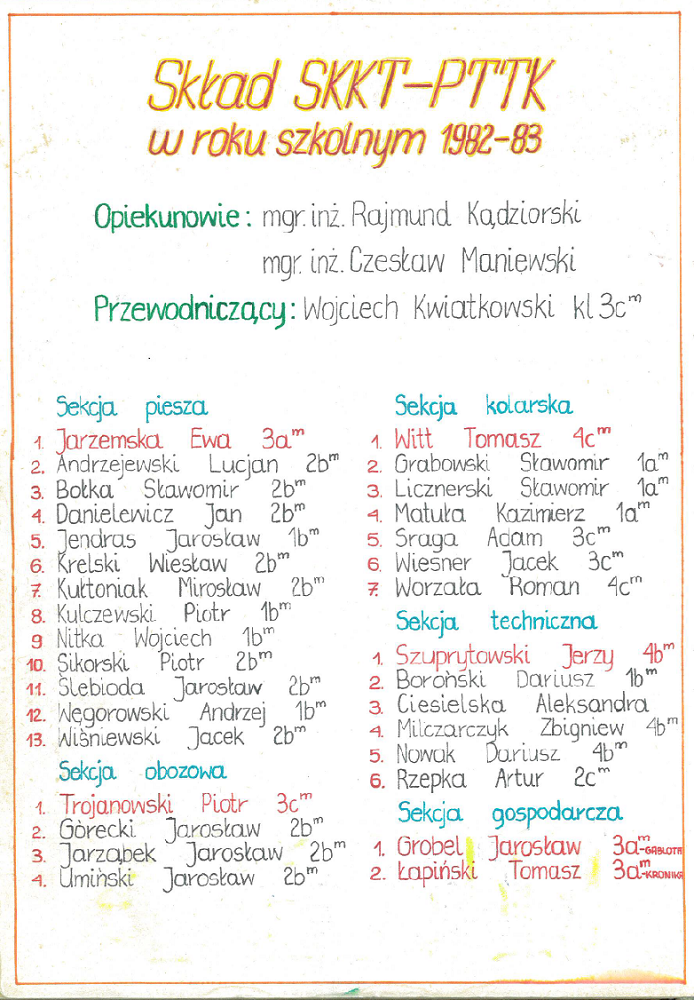 Skład SKKT-PTTK
w roku szkolnym 1982-83
Opiekunowie: mgr. inż. Rajmund Kądziorski
mgr. inż. Czesław Maniewski
Przewodniczący: Wojciech Kwiatkowski kl 3cᵐ
Sekcja piesza
1. Jarzemska Ewa 3aᵐ
2. Andrzejewski Lucjan 2bᵐ
3. Bołka Sławomir 2bᵐ
4. Danielewicz Jan 2bᵐ
5. Jendras Jarosław 1bᵐ
6. Krelski Wiesław 2bᵐ
7. Kułtoniak Mirosław 2bᵐ
8. Kulczewski Piotr 1bᵐ
9 Nitka Wojciech 1bᵐ
10. Sikorski Piotr 2bᵐ
11. Ślebioda Jarosław 2bᵐ
12. Węgorowski Andrzej 1bᵐ
13. Wiśniewski Jacek 2bᵐ
Sekcja obozowa
1. Trojanowski Piotr 3cᵐ
2. Górecki Jarosław 2bᵐ
3. Jarząbek Jarosław 2bᵐ
4. Umiński Jarosław 2bᵐ
Sekcja kolarska
1. Witt Tomasz 4cᵐ
2. Grabowski Sławomir 1aᵐ
3. Licznerski Sławomir 1aᵐ
4. Matuła Kazimierz 1aᵐ
5. Sraga Adam 3cᵐ
6. Wiesner Jacek 3cᵐ
7. Worzała Roman 4cᵐ
Sekcja techniczna
1. Szuprytowski Jerzy 4bᵐ
2. Boroński Dariusz 1bᵐ
3. Ciesielska Aleksandra
4. Milczarczyk Zbigniew 4bᵐ
5. Nowak Dariusz 4bᵐ
6. Rzepka Artur 2cᵐ
Sekcja gospodarcza
1. Grobel Jarosław 3aᵐ-GABLOTA
2. Łapiński Tomasz 3aᵐ-KRONIKA